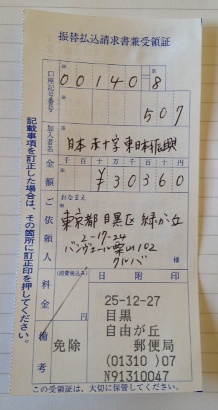 振替払込請求書兼受領証
口座記号番号
00140-8
507
加入者名
日本赤十字 東日本
千百十万千百十円
金額
¥30360
ご依頼人
おなまえ
東京都目黒区緑が丘
2-17-24
102
様
料金
(消費税込み)
円
日附印
備考
免除
25-12-27
目黒
自由が丘
郵便局
(01310)07
N91310047
記載事項を訂正した場合は、その箇所に訂正印を押してください。
この受領証は、大切に保管してください。